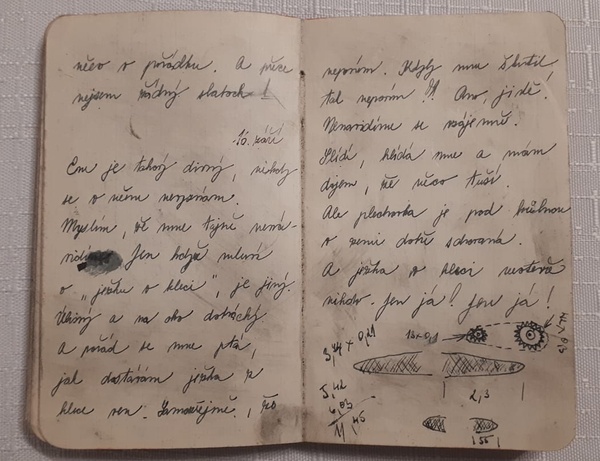 něco v pořádku. A přece
nejsem žádný slaboch!
16. září
Em je takový divný, nikdy
se v něm nevyznám.
Myslím, že mne tajně nená-
vidí. Jen když mluví
o „ježku v kleci“, je jiný.
Úlisný a na oko dobrácký
A pořád se mne ptá,
jak dostávám ježka z
klece ven. Samozřejmě, že
nepovím. Když mne škrtil
tak nepovím!! Ano, jidě!
Nenávidíme se vzájemně.
Slídí, hlídá mne a mám
dojem, že něco tuší.
Ale plechovka je pod
v zemi dobře schovaná.
A ježka v kleci neotevře
nikdo. Jen já! Jen já!
3,74 × 0,21
5,42
6,03
11,45
2,3